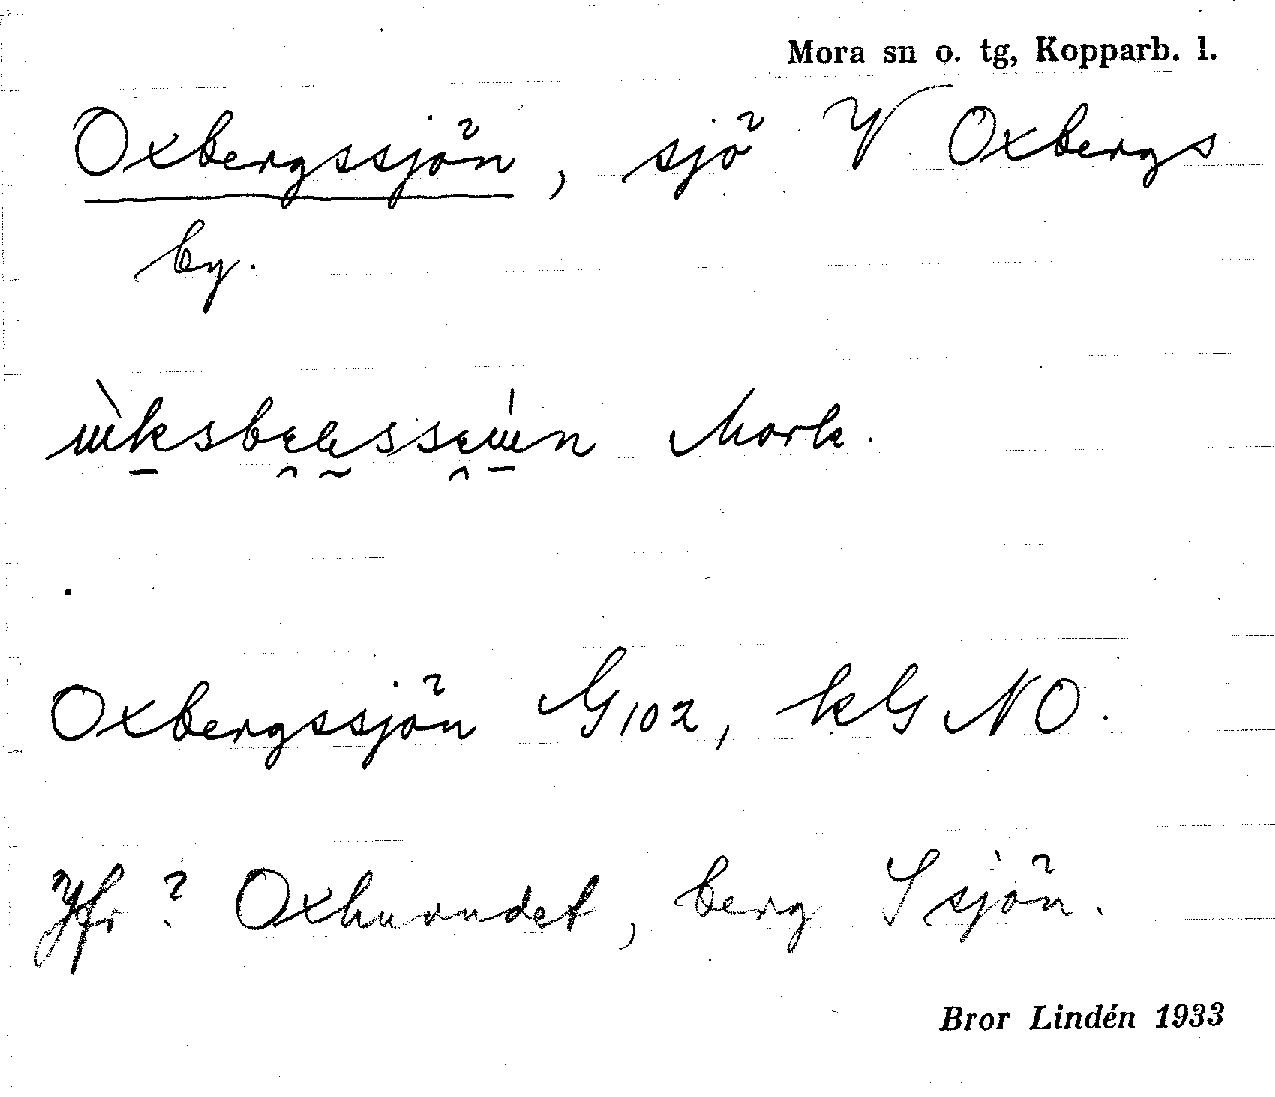 Mora sn o. tg, Kopparb. l.
Oxbergssjön, sjö V Oxbergs
by.
Mork.
Oxbergssjön G102, kG NO.
Jfr ? Oxhuvudet, berg S sjön.
Bror Lindén 1933